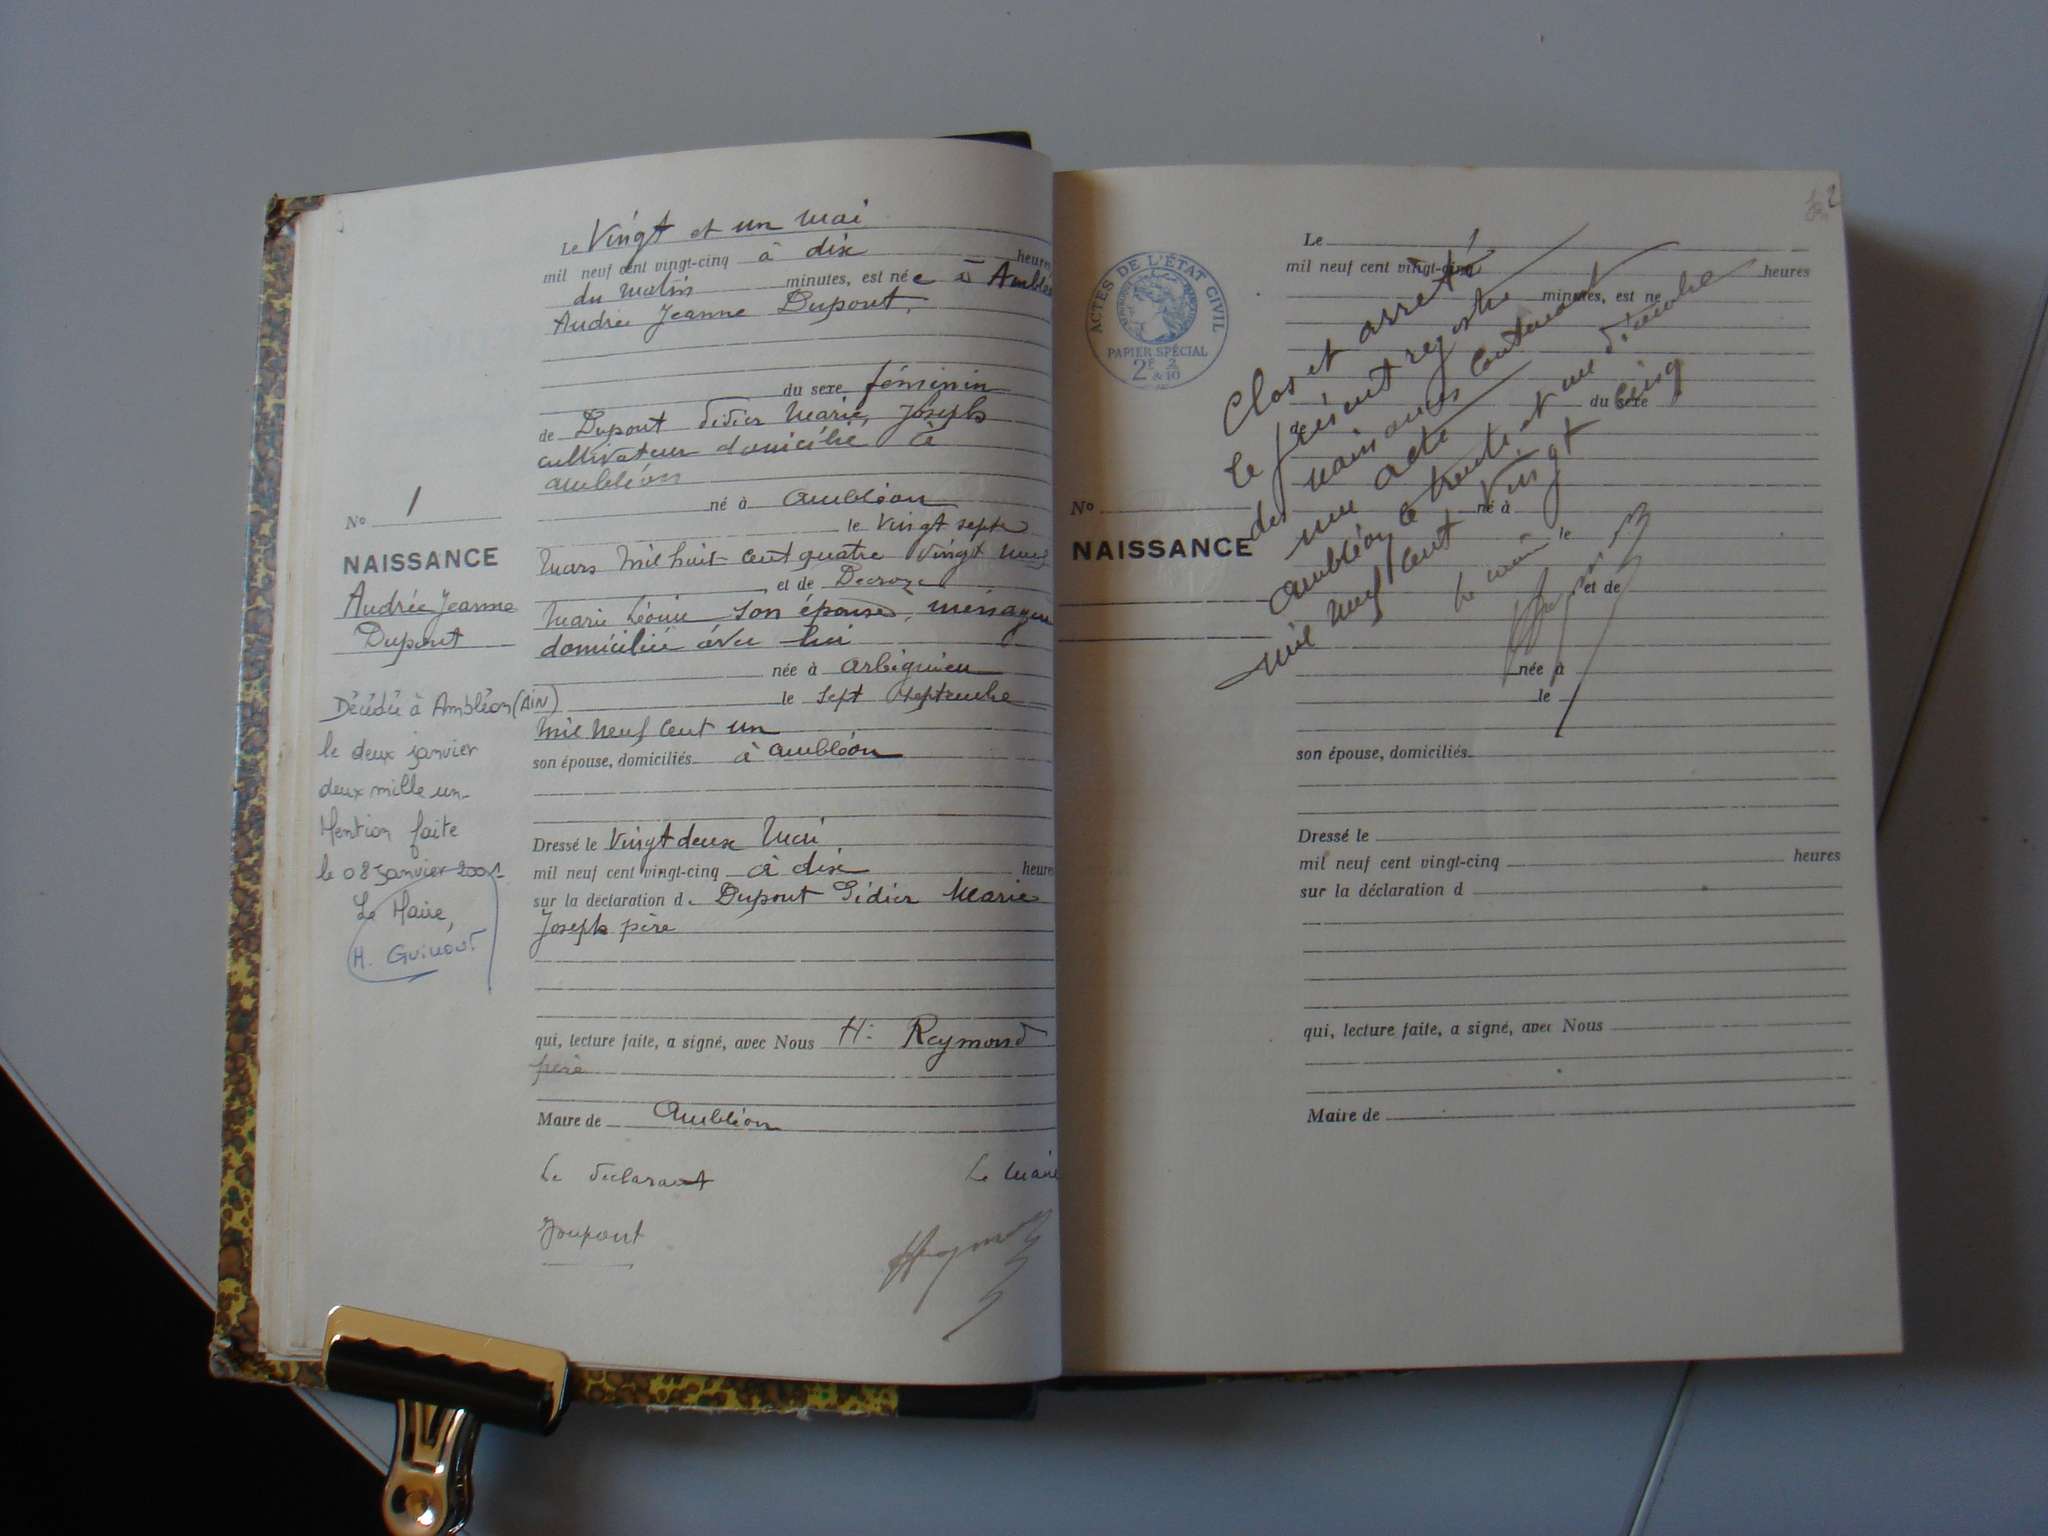 Le Vingt et un Mai
mil neuf cent vingt-cinq à dix heures
du matin minutes, est née à Amblé
Andrée Jeanne Dupont,
du sexe féminin
de Dupont Didier Marie, Joseph
cultivateur domicilié à
ambléon
né à ambléon
le vingt sept
Mars mil huit cent quatre vingt
et de Decroze
Marie Léonie son épouse, ménagère
domiciliée avec lui
née à arbignieu
le sept septembre
mil neuf cent un
son épouse, domiciliés à ambléon
Dressé le vingt deux Mai
mil neuf cent vingt-cinq à dix heures
sur la déclaration de Dupont Didier Marie
Joseph père
qui, lecture faite, a signé, avec Nous H. Reymond
père
Maire de Ambléon
Le déclarant Le Maire
JDupont
No 1
NAISSANCE
Andrée Jeanne
Dupont
Décédée à Ambléon (AIN)
le deux janvier
deux mille un.
Mention faite
le 08 janvier 2001
Le Maire,
2
ACTES DE L'ÉTAT CIVIL
PAPIER SPÉCIAL
2F 2/10
No
NAISSANCE
Le
mil neuf cent vingt-cinq heures
minutes, est né
du sexe
de
né à
le
et de
née à
le
son épouse, domiciliés
Dressé le
mil neuf cent vingt-cinq heures
sur la déclaration d
qui, lecture faite, a signé, avec Nous
Maire de
Clos et arrêté
le présent registre
des naissances contenant
un acte
ambléon le trente et un décembre
mil neuf cent vingt cinq
Le maire